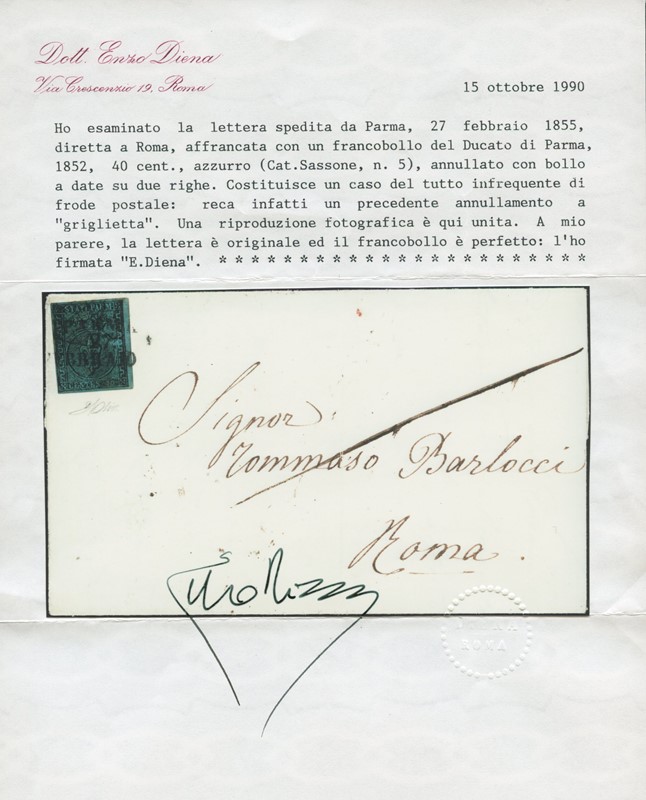 Dott. Enzo Diena
Via Crescenzio 19, Roma
15 ottobre 1990
Ho esaminato la lettera spedita da Parma, 27 febbraio 1855,
diretta a Roma, affrancata con un francobollo del Ducato di Parma,
1852, 40 cent., azzurro (Cat.Sassone, n. 5), annullato con bollo
a date su due righe. Costituisce un caso del tutto infrequente di
frode postale: reca infatti un precedente annullamento a
"griglietta". Una riproduzione fotografica è qui unita. A mio
parere, la lettera è originale ed il francobollo è perfetto: l'ho
firmata "E.Diena". * * * * * * * * * * * * * * * * * * * * * * *
STATI PARM
27
Signor
Tommaso Barlocci
Roma.
DIENA
ROMA